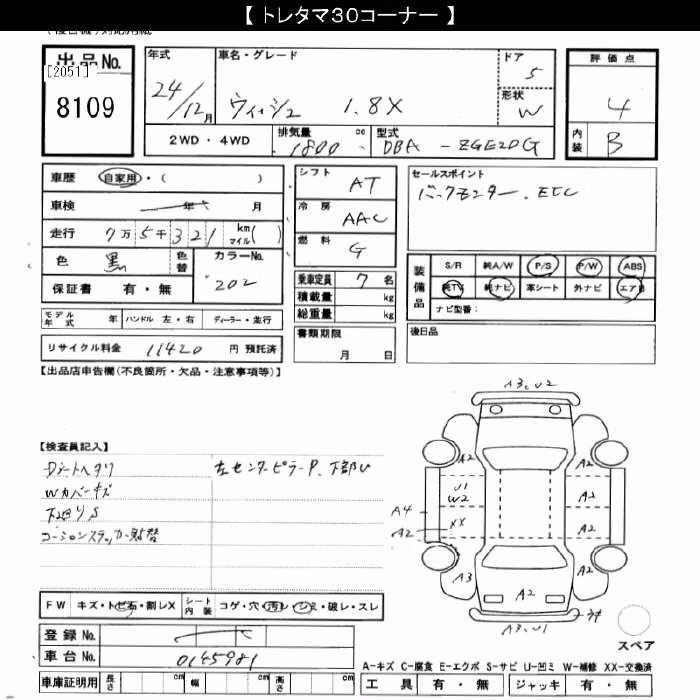 【 トレタマ30コーナー 】
出品No.
[2051]
8109
年式
24/12月
車名・グレード
ウィッシュ 1.8X
ドア
5
形状
W
評価点
4
内装
B
2WD・4WD
排気量
1800
cc
型式
DBA - ZGE20G
車歴
自家用・( )
車検
年 月
走行
7万5千321 km マイル( )
色
黒
色替
カラーNo.
202
保証書 有・無
シフト
AT
冷房
AAC
燃料
G
乗車定員 7 名
積載量 kg
総重量 kg
セールスポイント
バックモニター、ETC
装備品
S/R 純A/W P/S P/W ABS
純TV 純ナビ 革シート 外ナビ エアB
ナビ型番:
モデル年式 年 ハンドル 左・右 ディーラー・並行
書類期限
月 日
後日品
リサイクル料金 11420 円 預託済
【出品店申告欄(不良箇所・欠品・注意事項等)】
【検査員記入】
Dシートヘタリ
Wカバーキズ
下回りS
コーションステッカー貼替
左センターピラーP、下部U
A3、U2
A2
A2
U1
W2
A2
A4
XX
A2
A2
A3
A2
A2
A3、U1
スペア
FW キズ・トビ石・割レX
シート内装 コゲ・穴・汚レ・シミ・破レ・スレ
登録No.
車台No. 0145981
車庫証明用 長さ cm 幅 cm 高さ cm
A−キズ C−腐食 E−エクボ S−サビ U−凹ミ W−補修 XX−交換済
工具 有・無 ジャッキ 有・無